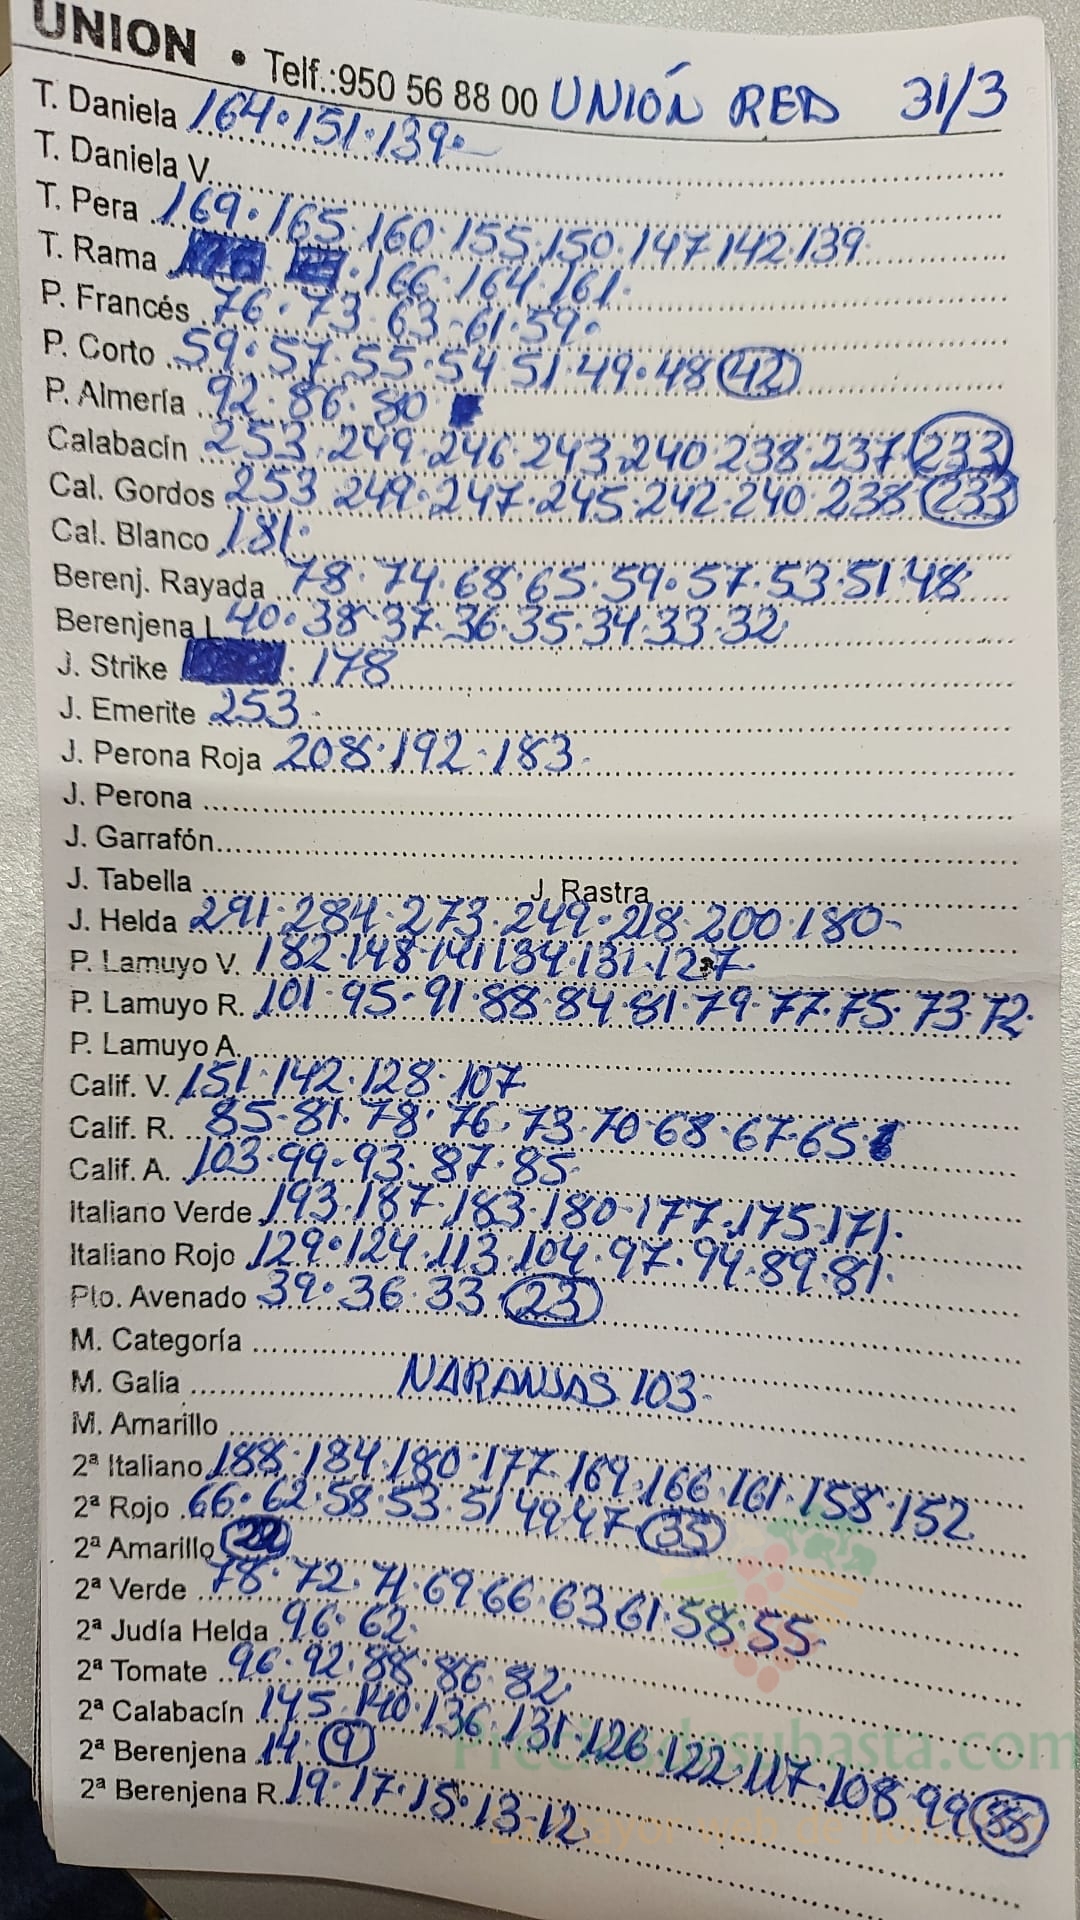 UNION • Telf.:950 56 88 00 UNIÓN RED 31/3
T. Daniela 164·151·139·
T. Daniela V.
T. Pera 169·165·160·155·150·147·142·139
T. Rama ·166·164·161·
P. Francés 76·73·63·61·59·
P. Corto 59·57·55·54·51·49·48 42
P. Almería 92·86·80
Calabacín 253·249·246·243·240·238·237·233
Cal. Gordos 253·249·247·245·242·240·238 233
Cal. Blanco 181·
Berenj. Rayada 78·74·68·65·59·57·53·51·48
Berenjena L 40·38·37·36·35·34·33·32
J. Strike · 178
J. Emerite 253·
J. Perona Roja 208·192·183·
J. Perona
J. Garrafón
J. Tabella J. Rastra
J. Helda 291·284·273·249·218·200·180-
P. Lamuyo V. 182·148·141·134·131·127·
P. Lamuyo R. 101·95·91·88·84·81·79·77·75·73·72·
P. Lamuyo A.
Calif. V. 151·142·128·107
Calif. R. 85·81·78·76·73·70·68·67·65
Calif. A. 103·99·93·87·85
Italiano Verde 193·187·183·180·177·175·171·
Italiano Rojo 129·124·113·104·97·94·89·81·
Pto. Avenado 39·36·33 23
M. Categoría
M. Galia NARANJAS 103-
M. Amarillo
2ª Italiano 188·184·180·177·169·166·161·158·152
2ª Rojo 66·62·58·53·51 49 47 35
2ª Amarillo
2ª Verde 78·72·71·69·66·63·61·58·55
2ª Judía Helda 96·62·
2ª Tomate 96·92·88·86·82
2ª Calabacín 145·140·136·131·126·122·117·108·99 88
Preciosdesubasta.com
2ª Berenjena 14· 9
2ª Berenjena R. 19·17·15·13·12